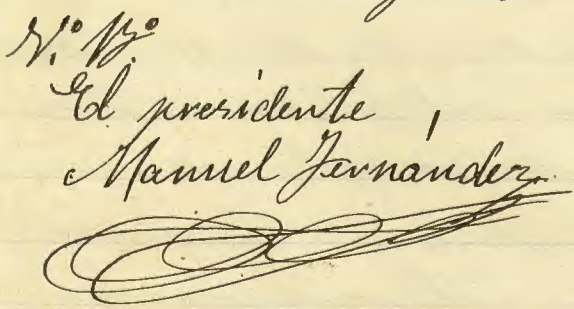 V.º B.º
El presidente
Manuel Fernández